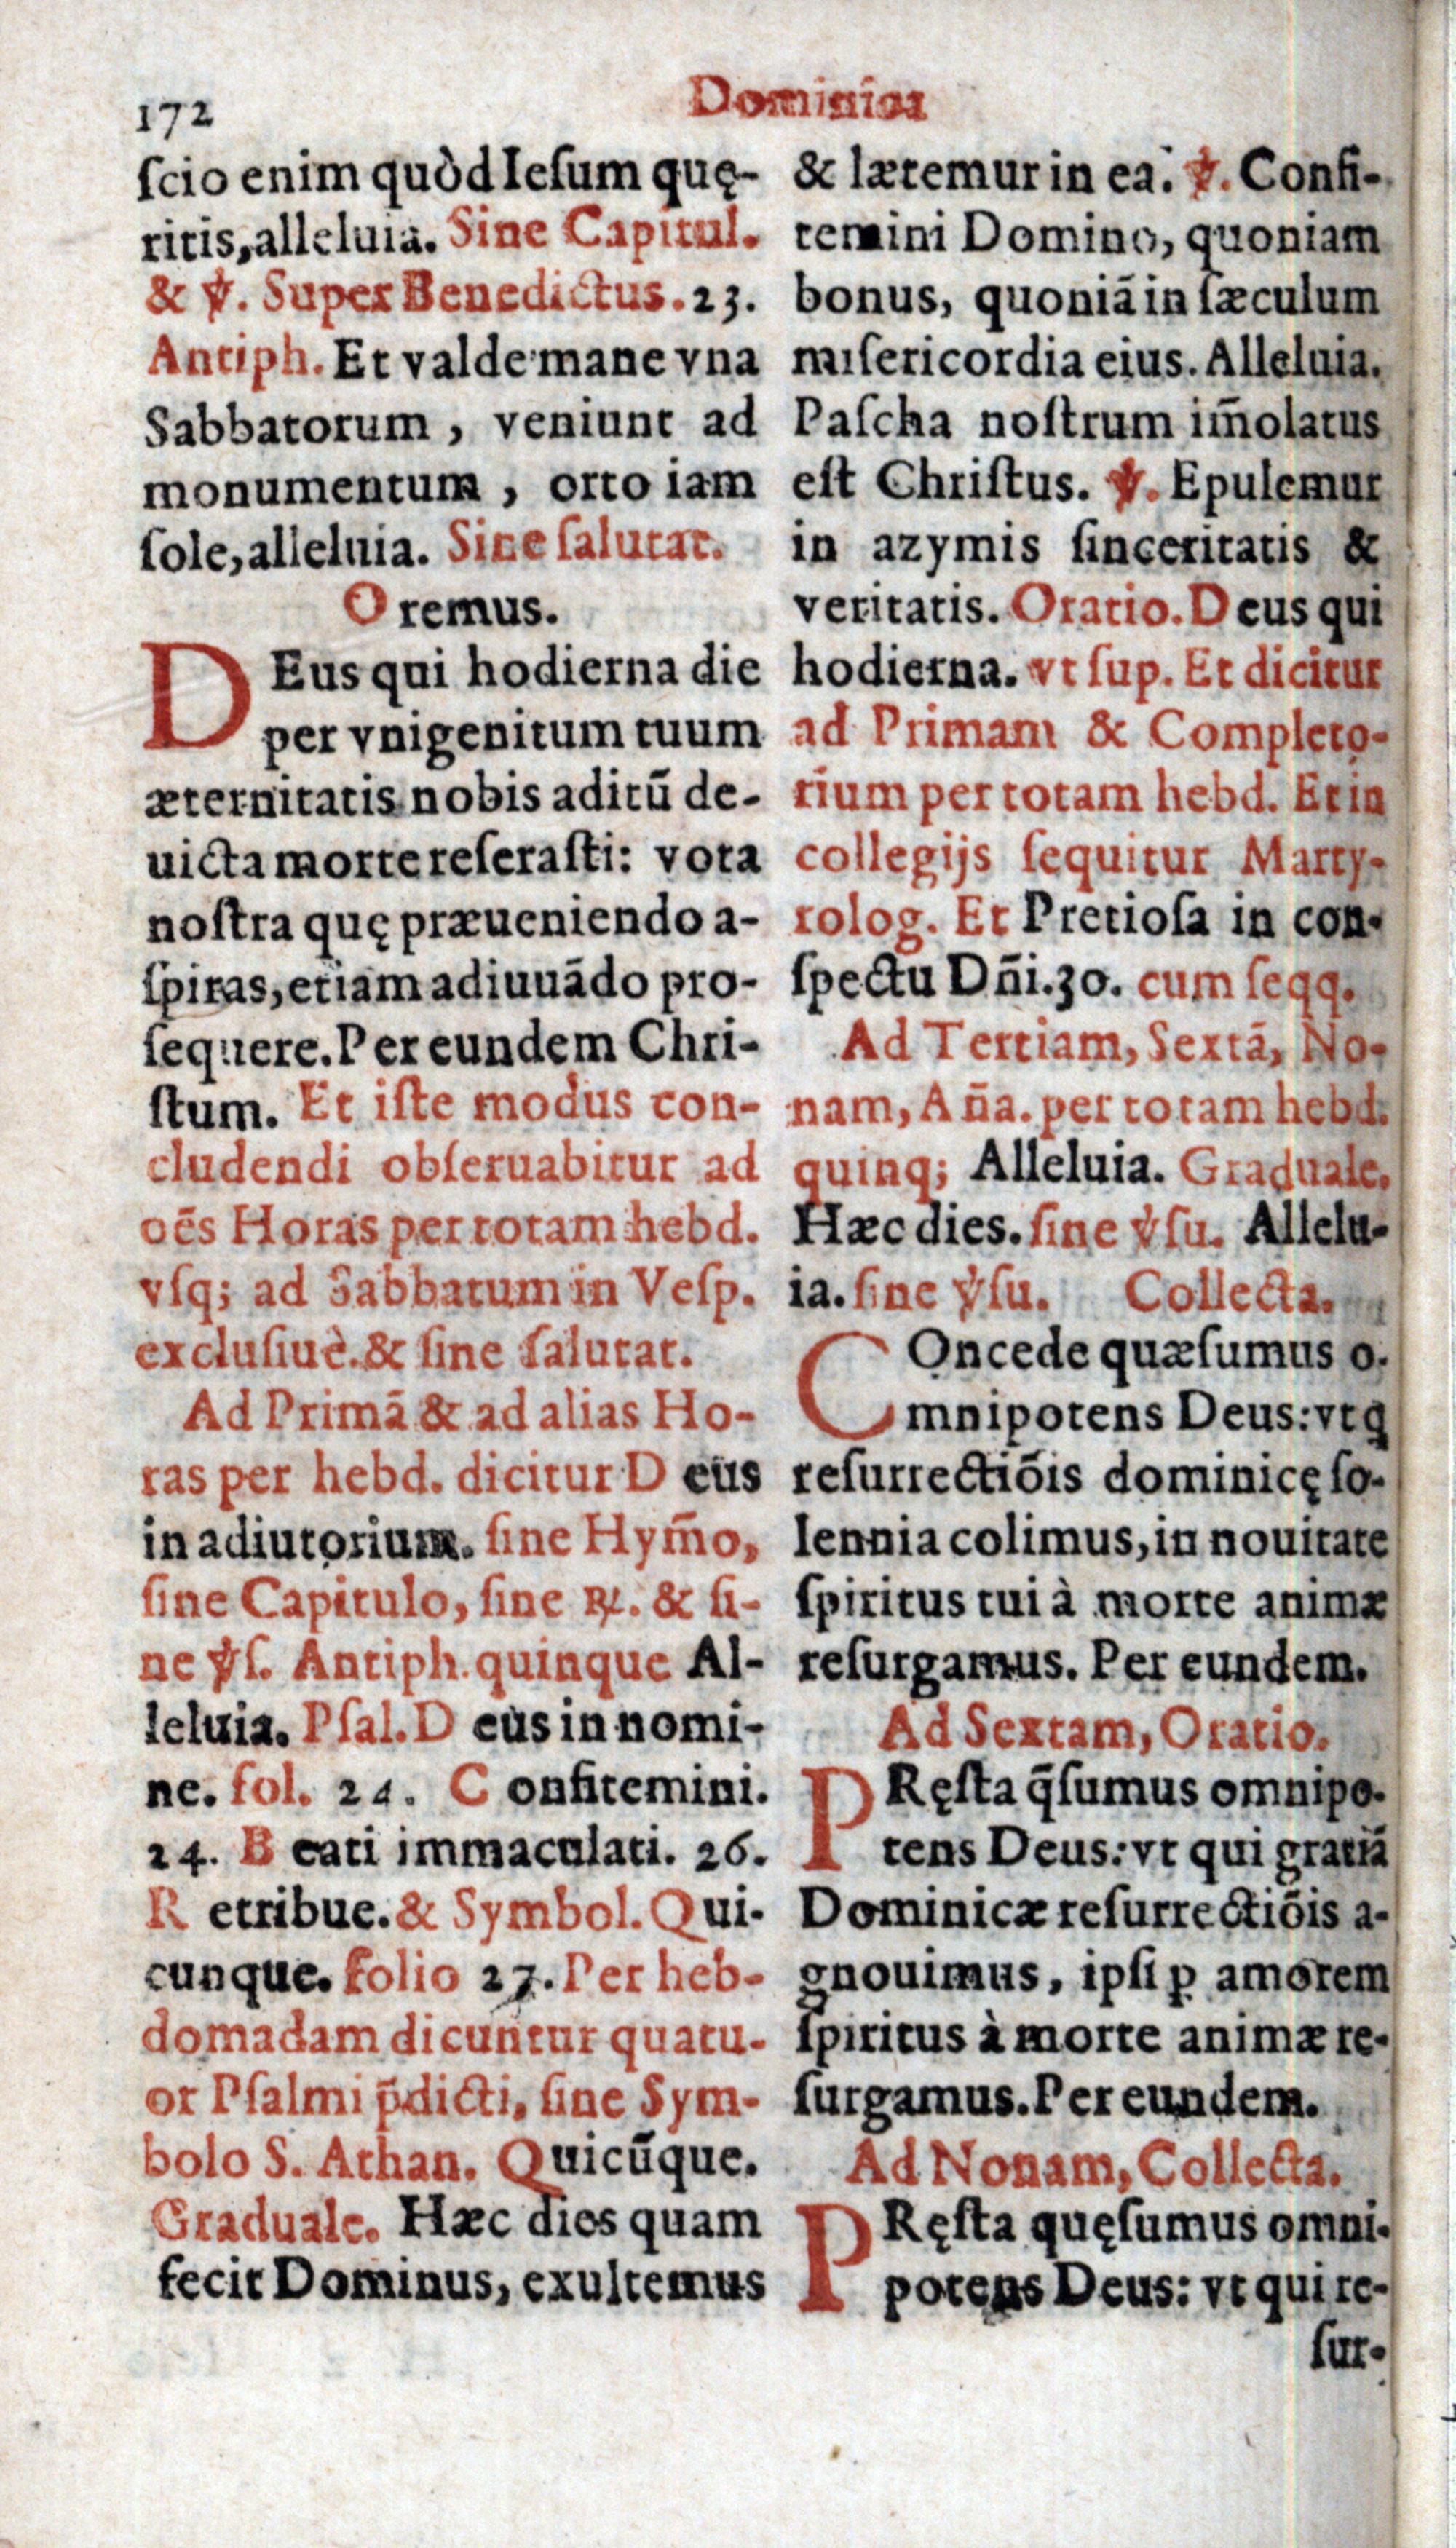 172
Dominica
ſcio enim quòd Ieſum quę-
ritis, alleluia. Sine Capitul.
& ℣. Super Benedictus. 23.
Antiph. Et valde mane vna
Sabbatorum, veniunt ad
monumentum, orto iam
ſole, alleluia. Sine ſalutat.
Oremus.
DEus qui hodierna die
per vnigenitum tuum
æternitatis nobis aditū de-
uicta morte reſeraſti: vota
noſtra quę præueniendo a-
ſpiras, etiam adiuuādo pro-
ſequere. Per eundem Chri-
ſtum. Et iſte modus con-
cludendi obſeruabitur ad
oēs Horas per totam hebd.
vſq; ad Sabbatum in Veſp.
excluſiuè. & ſine ſalutat.
Ad Primā & ad alias Ho-
ras per hebd. dicitur Deus
in adiutorium. ſine Hym̄o,
ſine Capitulo, ſine ℟. & ſi-
ne ℣ſ. Antiph. quinque Al-
leluia. Pſal. Deus in nomi-
ne. fol. 24. Confitemini.
24. Beati immaculati. 26.
Retribue. & Symbol. Qui-
cunque. folio 27. Per heb-
domadam dicuntur quatu-
or Pſalmi p̄dicti, ſine Sym-
bolo S. Athan. Quicūque.
Graduale. Hæc dies quam
fecit Dominus, exultemus
& lætemur in ea. ℣. Confi-
temini Domino, quoniam
bonus, quoniā in ſæculum
miſericordia eius. Alleluia.
Paſcha noſtrum im̄olatus
eſt Chriſtus. ℣. Epulemur
in azymis ſinceritatis &
veritatis. Oratio. Deus qui
hodierna. vt ſup. Et dicitur
ad Primam & Completo-
rium per totam hebd. Et in
collegijs ſequitur Marty-
rolog. Et Pretioſa in con-
ſpectu Dn̄i. 30. cum ſeqq.
Ad Tertiam, Sextā, No-
nam, An̄a. per totam hebd.
quinq; Alleluia. Graduale.
Hæc dies. ſine ℣ſu. Allelu-
ia. ſine ℣ſu. Collecta.
COncede quæſumus o-
mnipotens Deus: vt q
reſurrectiōis dominicę ſo-
lennia colimus, in nouitate
ſpiritus tui à morte animæ
reſurgamus. Per eundem.
Ad Sextam, Oratio.
PRęſta q̄ſumus omnipo-
tens Deus: vt qui gratiā
Dominicæ reſurrectiōis a-
gnouimus, ipſi ꝑ amorem
ſpiritus à morte animæ re-
ſurgamus. Per eundem.
Ad Nonam, Collecta.
PRęſta quęſumus omni-
potens Deus: vt qui re-
ſur-